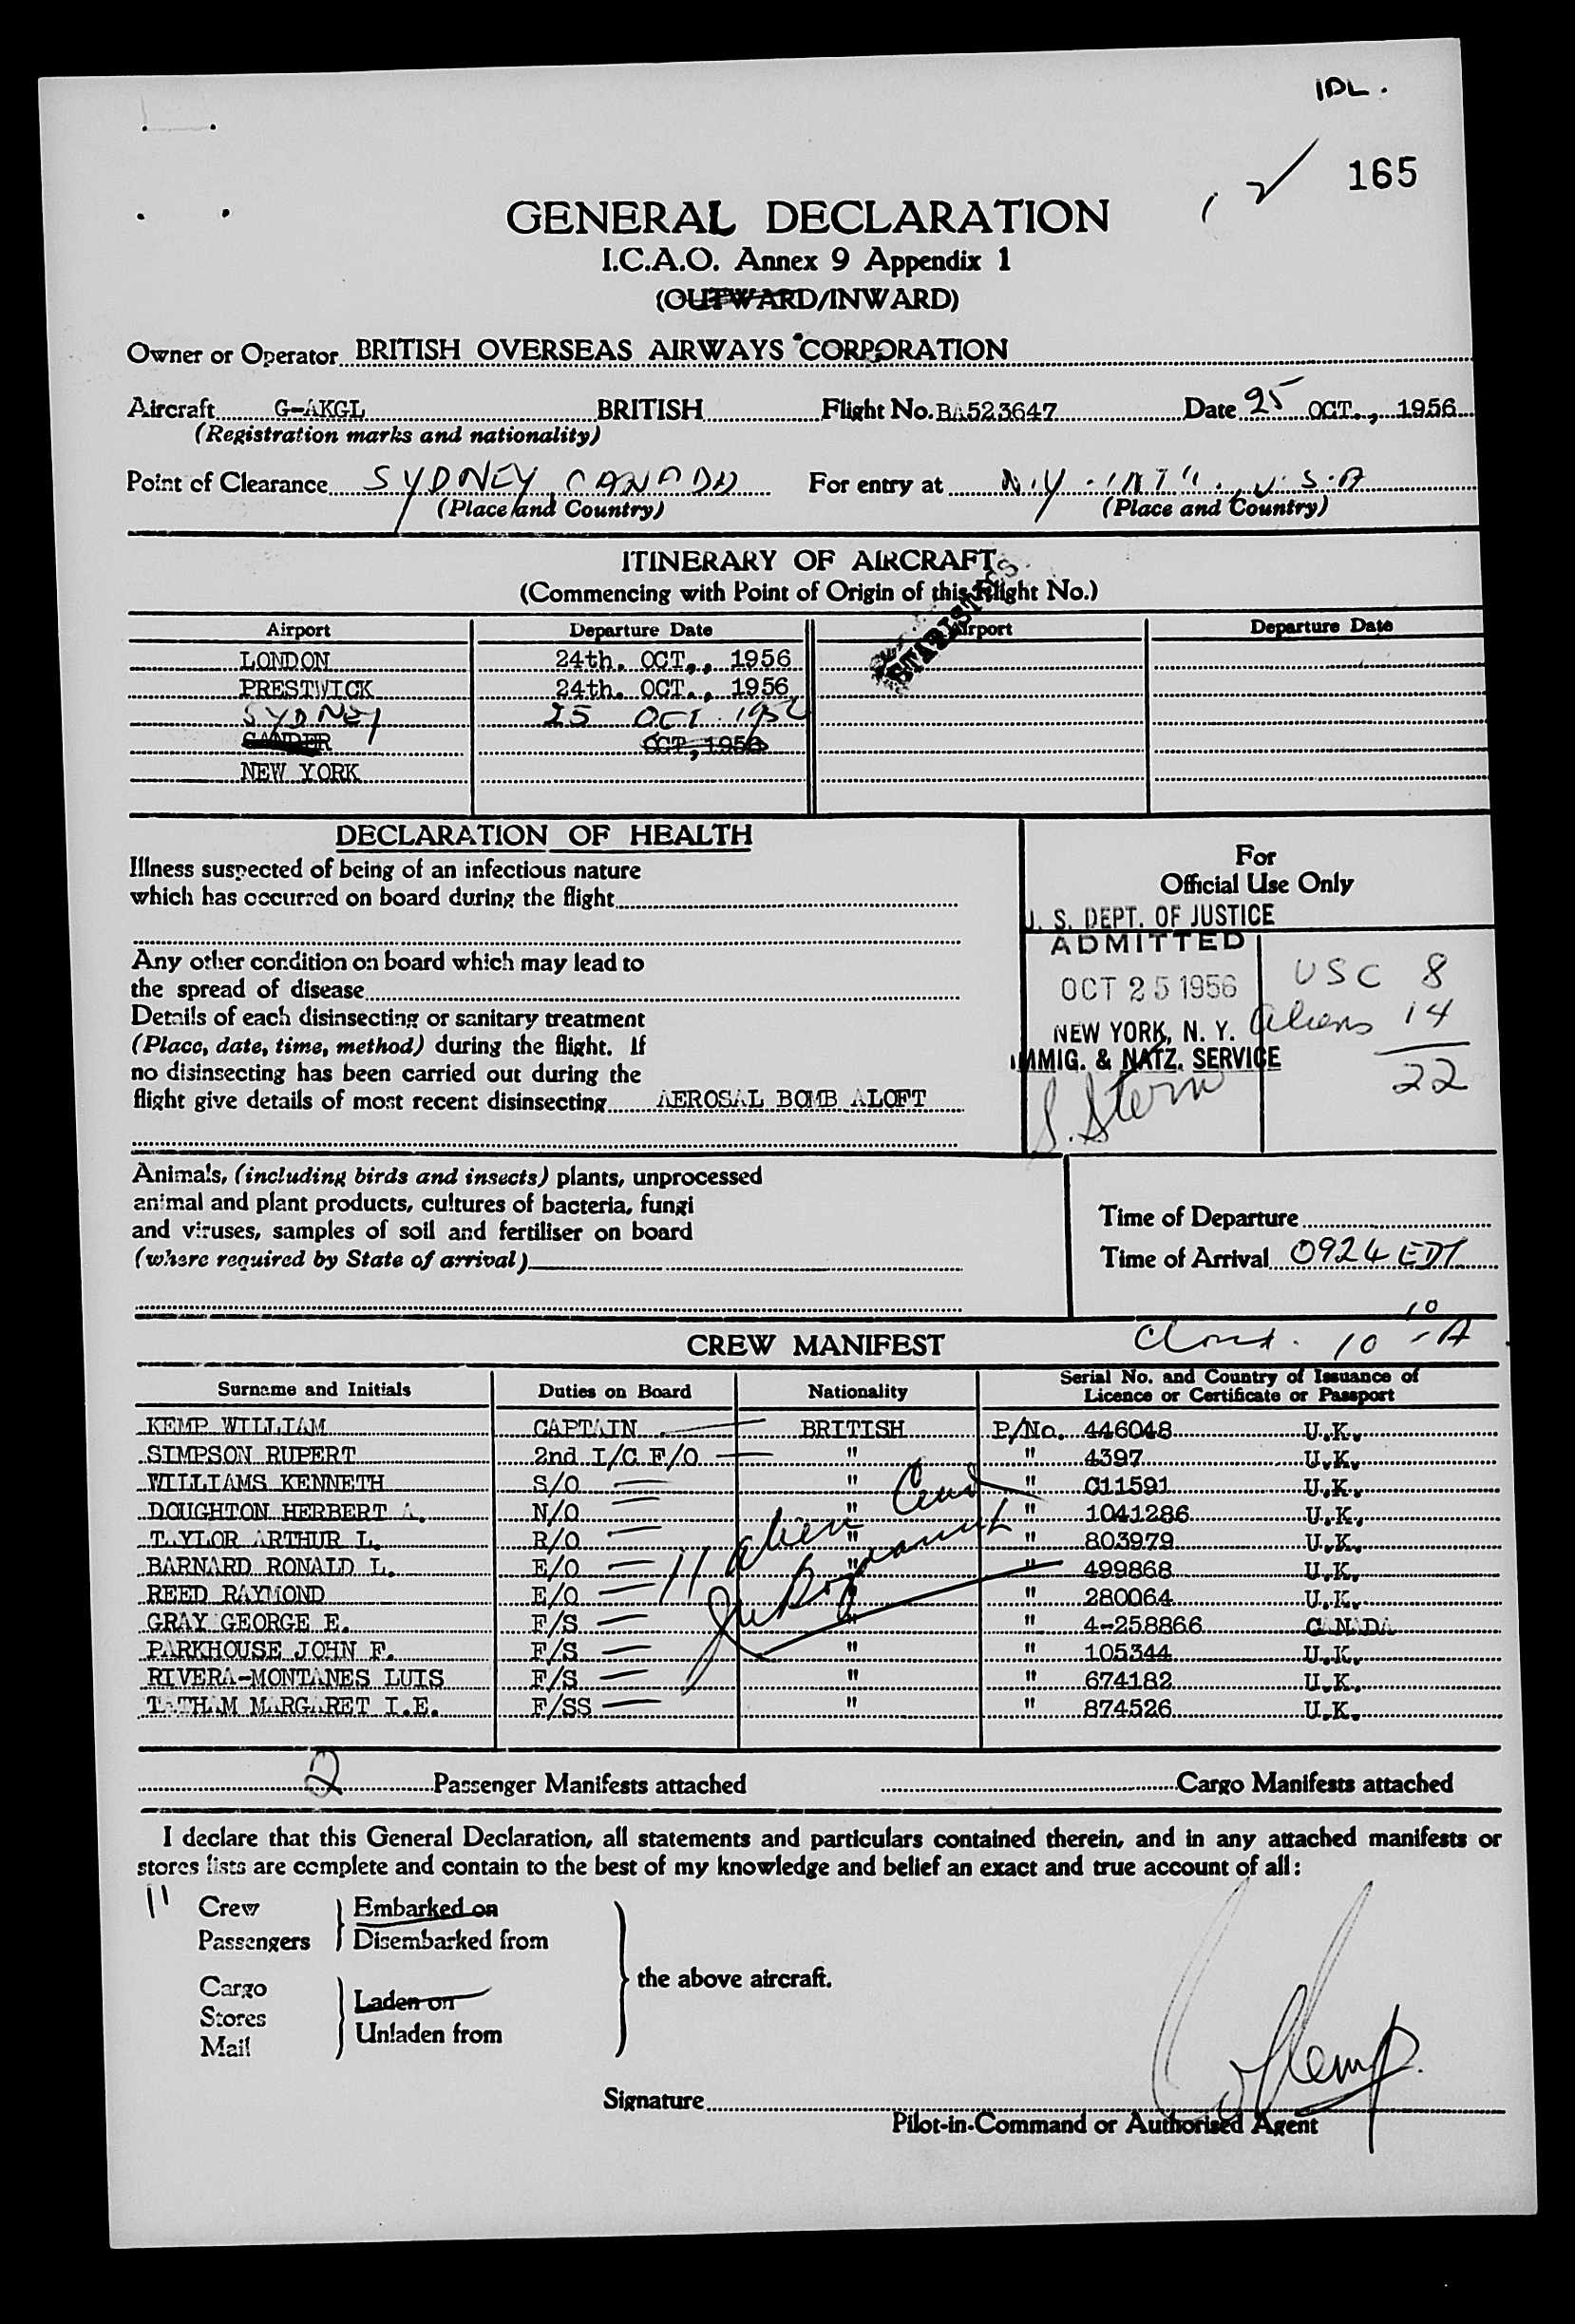 IDL.
165
GENERAL DECLARATION
I.C.A.O. Annex 9 Appendix 1
(OUTWARD/INWARD)
Owner or Operator BRITISH OVERSEAS AIRWAYS CORPORATION
Aircraft G-AKGL BRITISH Flight No. BA523647 Date 25 OCT., 1956
(Registration marks and nationality)
Point of Clearance SYDNEY, CANADA For entry at N.Y. INT'L., U.S.A
(Place and Country) (Place and Country)
ITINERARY OF AIRCRAFT
(Commencing with Point of Origin of this Flight No.)
Airport Departure Date Airport Departure Date
LONDON 24th. OCT., 1956
PRESTWICK 24th. OCT., 1956
SYDNEY 25 OCT. 1956
GANDER OCT, 1956
NEW YORK
DECLARATION OF HEALTH
Illness suspected of being of an infectious nature
which has occurred on board during the flight
Any other condition on board which may lead to
the spread of disease
Details of each disinsecting or sanitary treatment
(Place, date, time, method) during the flight. If
no disinsecting has been carried out during the
flight give details of most recent disinsecting AEROSAL BOMB ALOFT
For
Official Use Only
U. S. DEPT. OF JUSTICE
ADMITTED
OCT 25 1956
NEW YORK, N. Y.
IMMIG. & NATZ. SERVICE
S. Stern
USC 8
Aliens 14
22
Animals, (including birds and insects) plants, unprocessed
animal and plant products, cultures of bacteria, fungi
and viruses, samples of soil and fertiliser on board
(where required by State of arrival)
Time of Departure
Time of Arrival 0924 EDT
CREW MANIFEST
Surname and Initials Duties on Board Nationality Serial No. and Country of Issuance of Licence or Certificate or Passport
KEMP WILLIAM CAPTAIN BRITISH P/No. 446048 U.K.
SIMPSON RUPERT 2nd I/C F/O " " 4397 U.K.
WILLIAMS KENNETH S/O " " C11591 U.K.
DOUGHTON HERBERT A. N/O " " 1041286 U.K.
TAYLOR ARTHUR L. R/O " " 803979 U.K.
BARNARD RONALD L. E/O " " 499868 U.K.
REED RAYMOND E/O " " 280064 U.K.
GRAY GEORGE E. F/S " " 4-258866 CANADA
PARKHOUSE JOHN F. F/S " " 105344 U.K.
RIVERA-MONTANES LUIS F/S " " 674182 U.K.
TATHAM MARGARET I.E. F/SS " " 874526 U.K.
11 alien
2 Passenger Manifests attached Cargo Manifests attached
I declare that this General Declaration, all statements and particulars contained therein, and in any attached manifests or
stores lists are complete and contain to the best of my knowledge and belief an exact and true account of all:
11 Crew Embarked on
Passengers Disembarked from
the above aircraft.
Cargo Laden on
Stores
Mail Unladen from
Signature
Pilot-in-Command or Authorised Agent